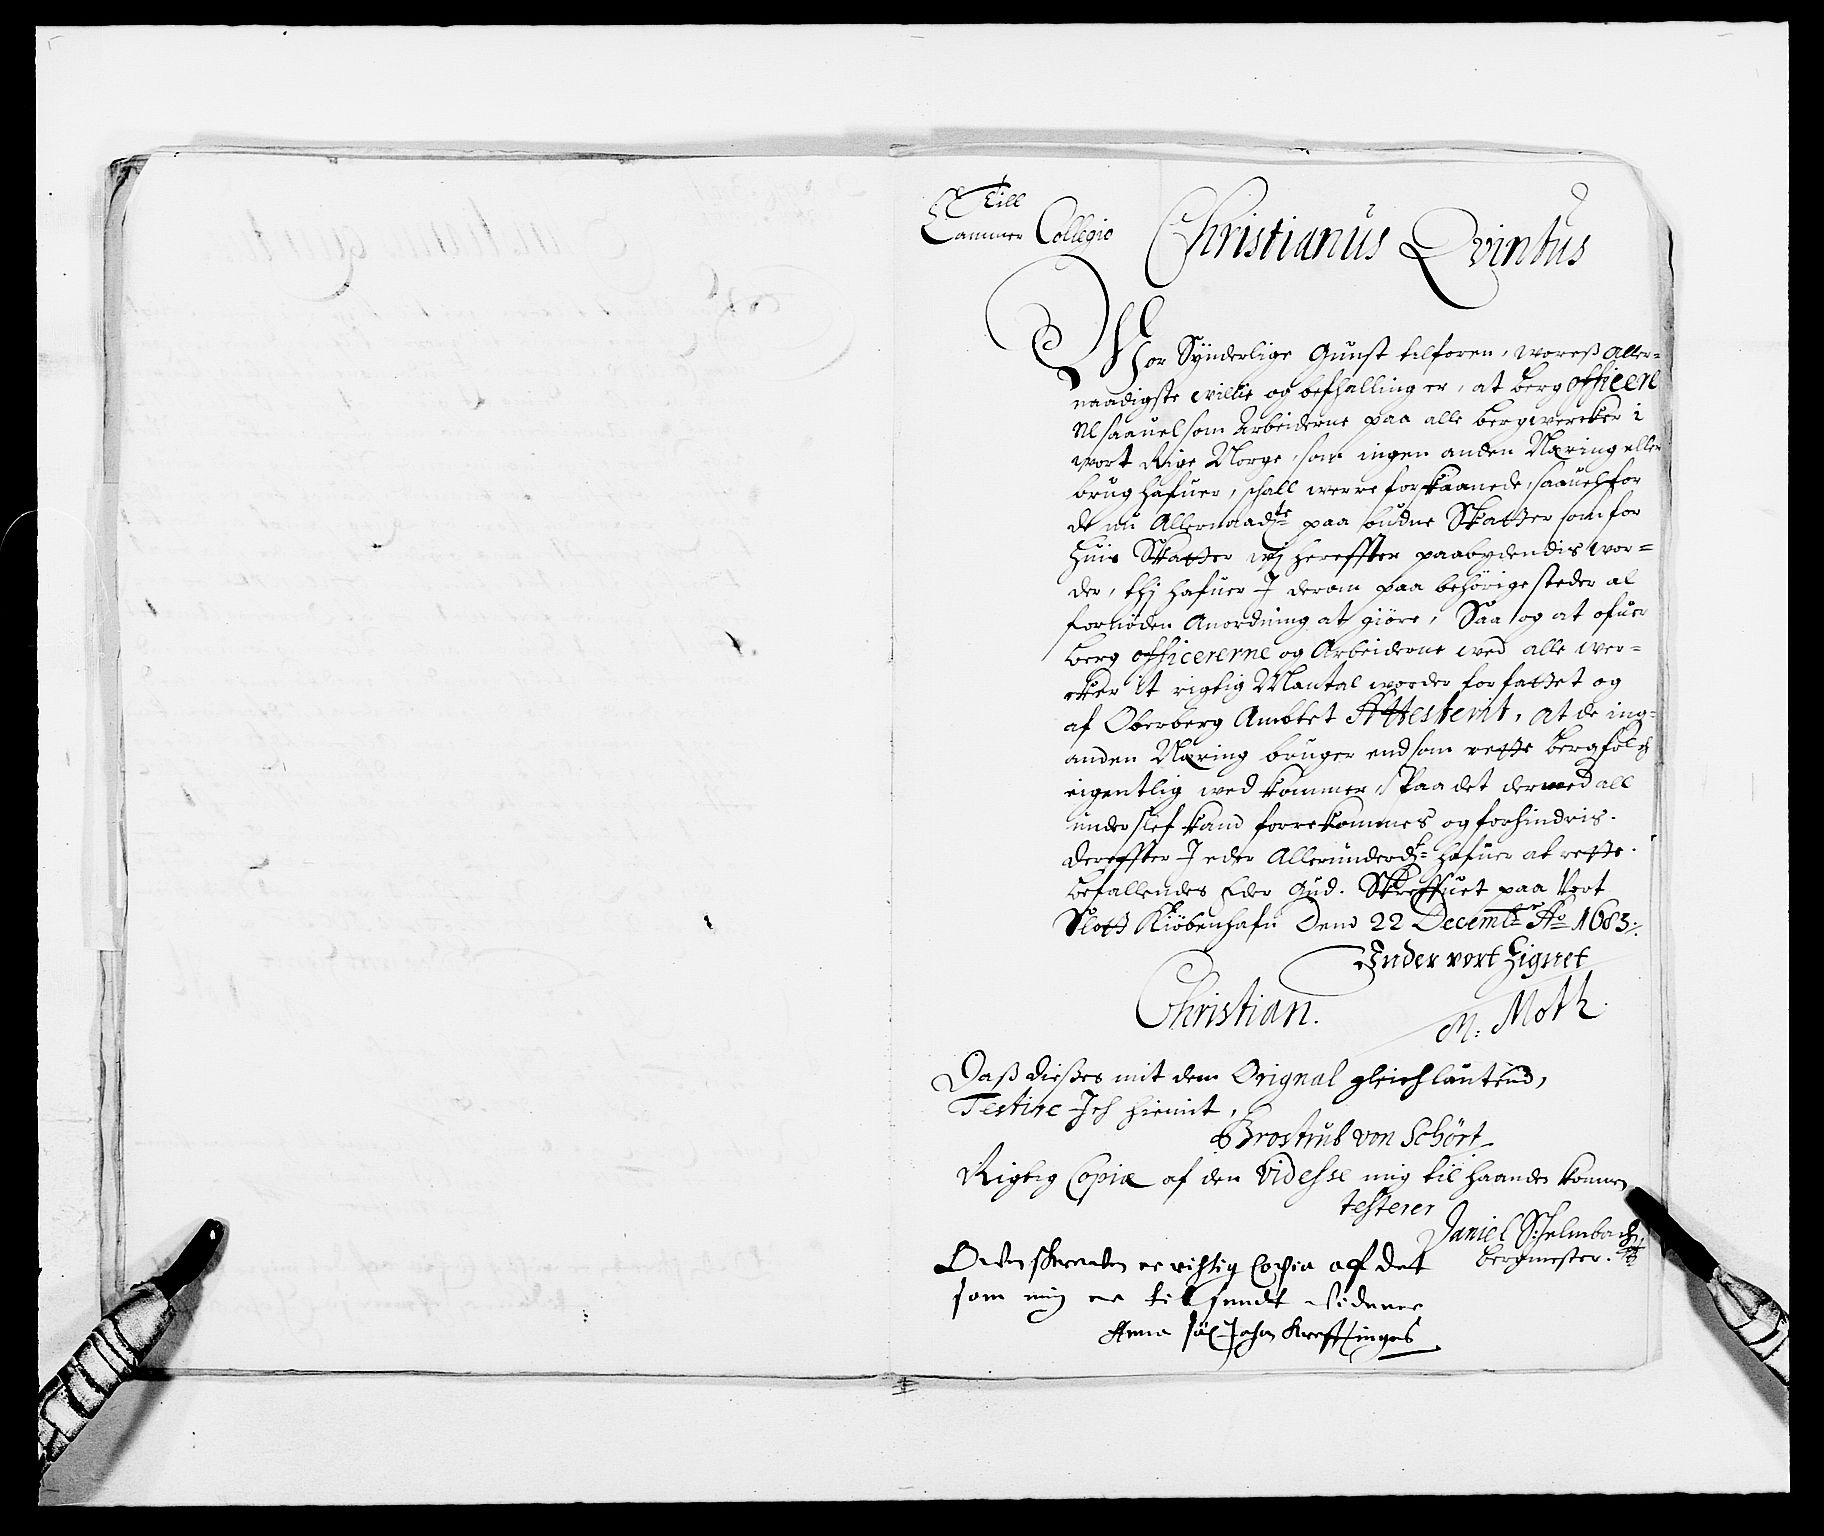 Till
Cammer Collegio
Christianus Qvintus
Vor Synderlige Gunst tilforen, woreß Aller-
naadigste willie og befhalling er, at berg officere
Alsaauelsom Arbeiderne paa alle bergwercker i
wort Rige Norge, som ingen anden Næring eller
brug hafuer, schall werre forskaanede, saauelfor
de nu Allernaadste paa budne Skatter som for
huis Skatter wj hereffter paabydendis wor-
der, thj hafuer I derom paa behörige steder al
fornöden Anordning at giöre, Saa og at ofuer
berg officererne og Arbeiderne wed alle wer-
cker it rigtig Mantal worder forfattet og
af Oberberg Ambtet Attesterit, at de ing-
anden Næring bruger end som rette bergfolch
eigentlig wed kommer, Paa det dermed all
underslef kand forrekommes og forhindris.
Dereffter I eder Allerunderdt hafuer at rette.
befallendes Eder Gud. Skreffuet paa Vort
Slott Kiöbenhafn Dend 22 Decembr Ao 1683.
Under vort Zignet
Christian.
M: Moth
Daß dießes mit dem Orignal gleichlautend,
Testire Ich hiemit,
Brostrub von Schört
Rigtig Copia af den Videsse mig til haande kommen
testerer
Daniel Schelmbach
bergmester.
Owen skrewen er rigtig Copia af det
som mig er til sendt Vidner
Anna Sal. Johan Kreftinges